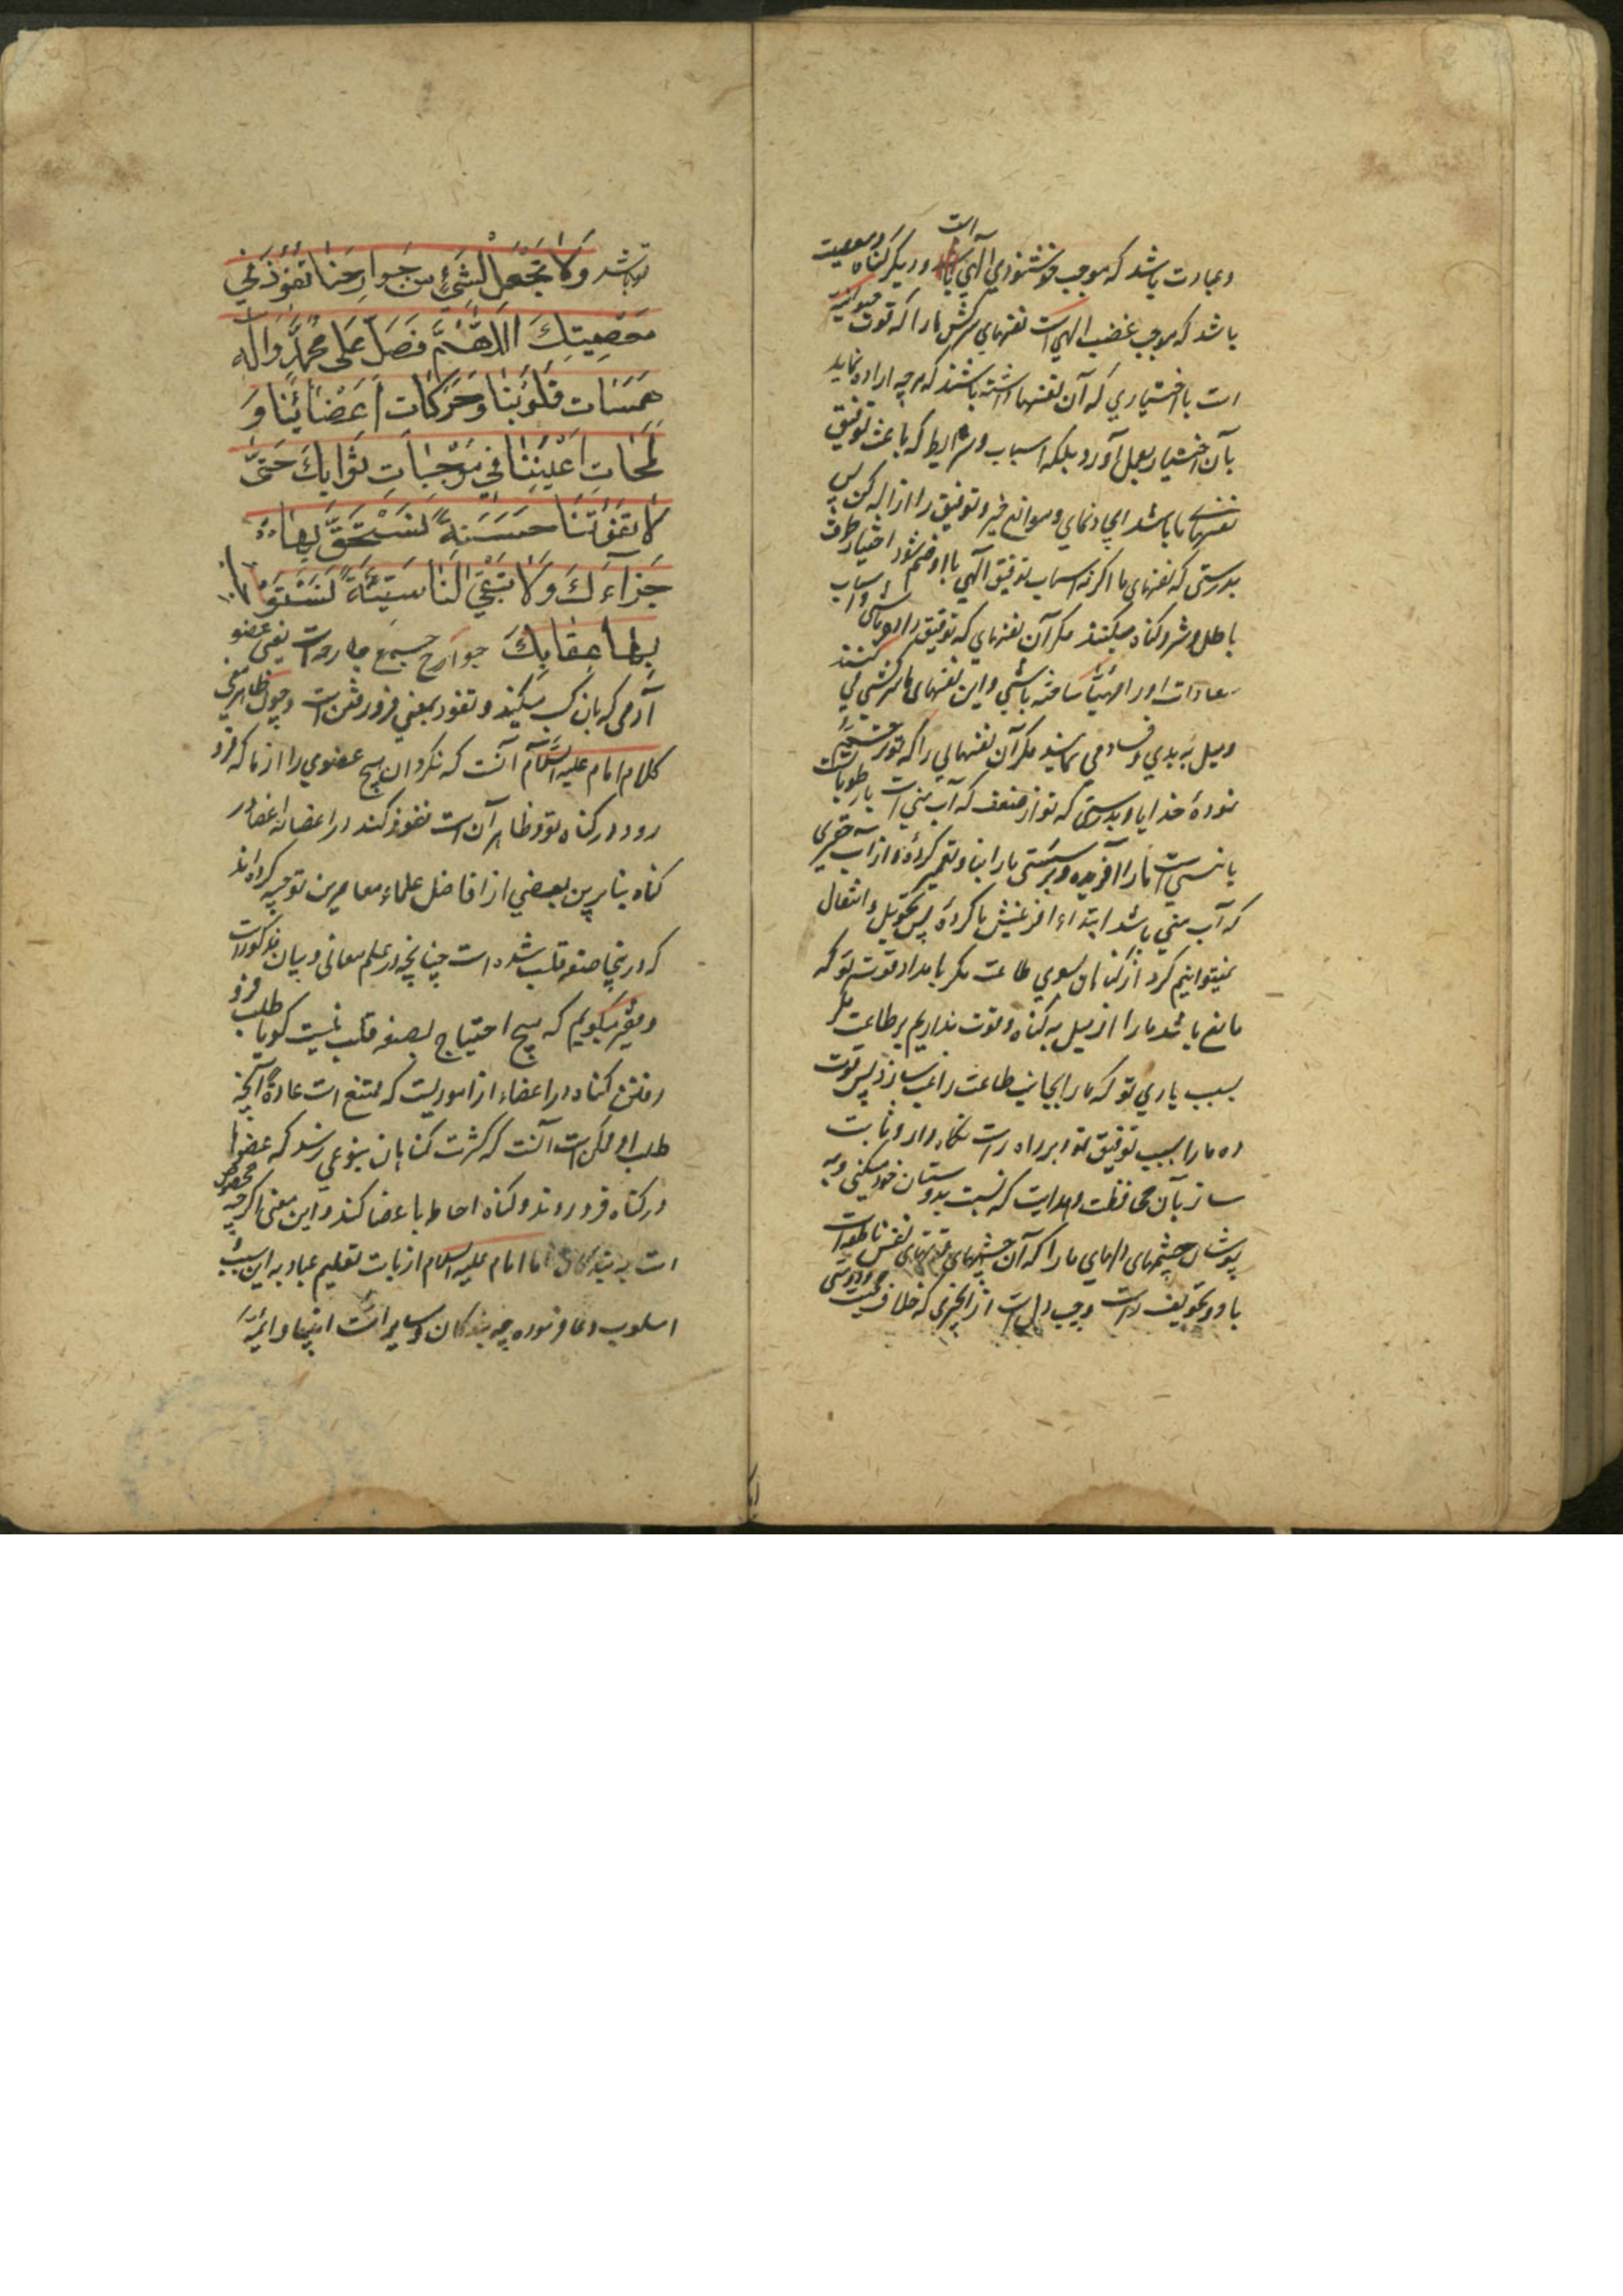 وعبادت باشد که موجب خوشنودي الهي است ودیگر گناه ومعصیت
باشد که موجب غضب الهي است نفسهاي سرکش ما را که قوت حیوانیه
است با اختیاري که آن نفسها داشته باشند که هرچه اراده نماید
بآن اختیار بعمل آورد بلکه اسباب وشرایط که باعث توفیق
نفسهاي ما باشد ایجاد نماي وموانع خیر وتوفیق را ازاله کن پس
بدرستي که نفسهاي ما اگر نه اسباب توفیق الهي با او ضم شود اختیار طرف
باطل وشر وگناه میکنند مگر آن نفسهاي که توفیق را داده باشي واسباب
سعادات او را مهیا ساخته باشي واین نفسهاي ما سرکشي مي کنند
ومیل به بدي وفساد مي نمایند مگر آن نفسهایي را که تو رحم
نمودهٔ خدایا وبدرستي که تو از ضعف که آب مني است یا رطوبات
یا نیستي است ما را آفریده وبرسستي ما را بنا وتعمیر کردهٔ واز آب حقیري
که آب مني باشد ابتداء افرینش ما کردهٔ پس تحویل وانتقال
نمیتوانیم کرد از گناهان بسوي طاعت مگر بامداد قوت تو که
مانع باشد ما را از میل به گناه وقوت نداریم بر طاعت مگر
بسبب یاري تو که ما را بجانب طاعت راغب سازد پس قوت
ده ما را بسبب توفیق تو وبر راه راست نگاه دار وثابت
ساز بآن محافظت وهدایت که نسبت بدوستان خود میکني و
بپوشان چشمهاي دلهاي ما را که آن چشمهاي نفس ناطقه است
از آنچیزي که خلاف محبت ودوستي
تو باشد وَلا تَجْعَلْ لِشَيْءٍ مِن جَوارِحِنا نُفُوذًا في
مَعْصِيَتِكَ اللّهُمَّ فَصَلِّ عَلى مُحَمَّدٍ وَآلِهِ
هَمَسَات قُلُوبِنا وَحَرَكاتِ اَعْضائِنا وَ
لَمَحاتِ اَعْيُنِنا في مُوجِباتِ ثَوابِكَ حَتّى
لا تَفُوتَنا حَسَنَةٌ نَسْتَحِقُّ بِها
جَزآءَكَ وَلا تَبْقى لَنا سَيِّئَةٌ نَسْتَوْجِبُ
بِها عِقابَكَ جوارح جمع جارحه است یعني عضو
آدمي که بان کسب میکنند ونفوذ بمعني فرو رفتن است وچون ظاهر معني
کلام امام علیه السلام آنست که نگردان هیچ عضوي را از ما که فرو
رود در گناه تو وظاهر آن است نفوذ کند در اعضا نه اعضا در
گناه بنابرین بعضي از افاضل علماء معاصرین توجیه کرده‌اند
که درینجا صنعه قلب شده است چنانچه در علم معاني وبیان مذکور است
وفقیر میگویم که هیچ احتیاج بصنعه قلب نیست گویا طلب فرو
رفتن گناه در اعضاء از امور یست که ممتنع است عادةً آنچه
طلب او ممکن است آنست که کثرت گناهان بنوعي رسد که عضوها
در گناه فرو روند وگناه احاطه باعضا کند واین معني اگرچه مخصوص
است به بندگان اما امام علیه السلام از بابت تعلیم عباد به این
اسلوب دعا فرموده چه بندگان وسایر امت انبیا وائمه